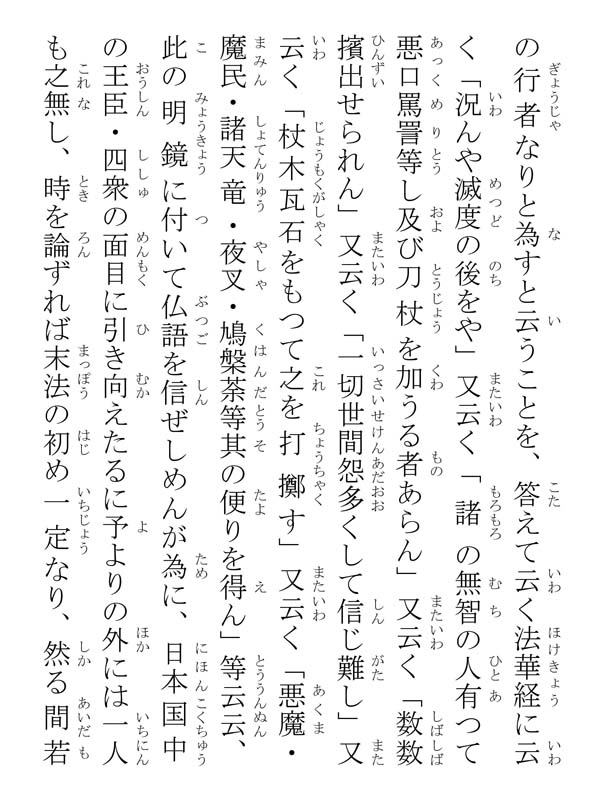 の行者なりと為すと云うことを、答えて云く法華経に云
く「況んや滅度の後をや」又云く「諸の無智の人有つて
悪口罵詈等し及び刀杖を加うる者あらん」又云く「数数
擯出せられん」又云く「一切世間怨多くして信じ難し」又
云く「杖木瓦石をもつて之を打擲す」又云く「悪魔・
魔民・諸天竜・夜叉・鳩槃荼等其の便りを得ん」等云云、
此の明鏡に付いて仏語を信ぜしめんが為に、日本国中
の王臣・四衆の面目に引き向えたるに予よりの外には一人
も之無し、時を論ずれば末法の初め一定なり、然る間若